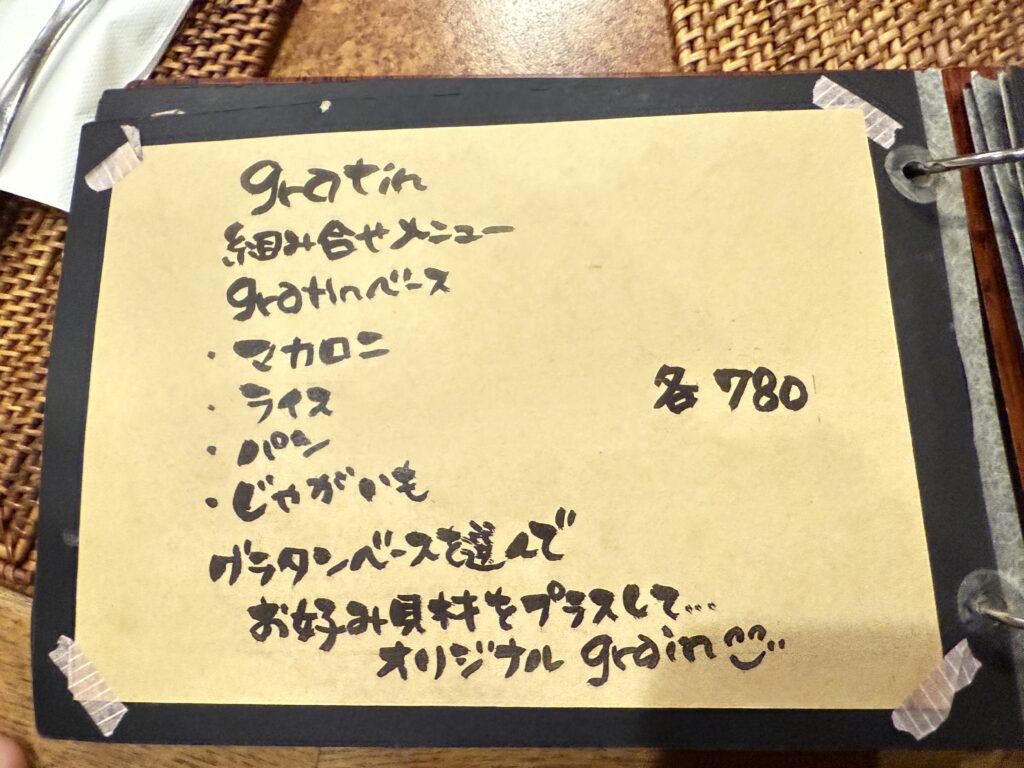 gratin
組み合せメニュー
gratinベース
・マカロニ
・ライス
・パン
・じゃがいも
各 780
グラタンベースを選んで
お好み具材をプラスして...
オリジナル grain